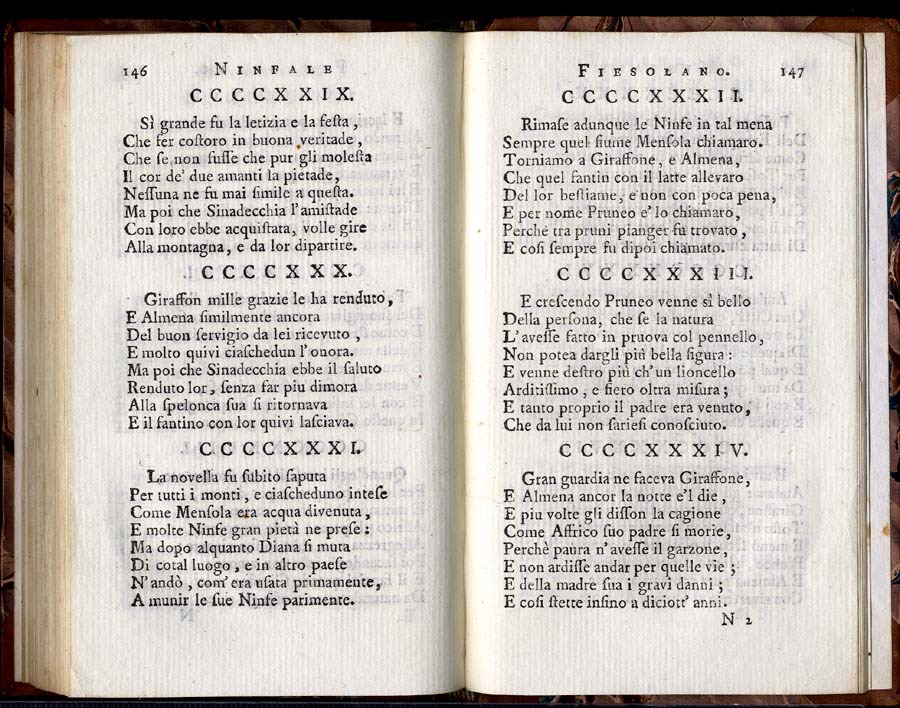 146 NINFALE
CCCCXXIX.
Sì grande fu la letizia e la feſta,
Che fer coſtoro in buona veritade,
Che ſe non fuſſe che pur gli moleſta
Il cor de' due amanti la pietade,
Neſſuna ne fu mai ſimile a queſta.
Ma poi che Sinadecchia l'amiſtade
Con loro ebbe acquiſtata, volle gire
Alla montagna, e da lor dipartire.
CCCCXXX.
Giraffon mille grazie le ha renduto,
E Almena ſimilmente ancora
Del buon ſervigio da lei ricevuto,
E molto quivi ciaſchedun l'onora.
Ma poi che Sinadecchia ebbe il ſaluto
Renduto lor, ſenza far piu dimora
Alla ſpelonca ſua ſi ritornava
E il fantino con lor quivi laſciava.
CCCCXXXI.
La novella fu ſubito ſaputa
Per tutti i monti, e ciaſcheduno inteſe
Come Menſola era acqua divenuta,
E molte Ninfe gran pietà ne preſe:
Ma dopo alquanto Diana ſi muta
Di cotal luogo, e in altro paeſe
N'andò, com'era uſata primamente,
A munir le ſue Ninfe parimente.
FIESOLANO. 147
CCCCXXXII.
Rimaſe adunque le Ninfe in tal mena
Sempre quel fiume Menſola chiamaro.
Torniamo a Giraffone, e Almena,
Che quel fantin con il latte allevaro
Del lor beſtiame, e non con poca pena,
E per nome Pruneo e' lo chiamaro,
Perchè tra pruni pianger fu trovato,
E coſi ſempre fu dipoi chiamato.
CCCCXXXIII.
E creſcendo Pruneo venne sì bello
Della perſona, che ſe la natura
L'aveſſe fatto in pruova col pennello,
Non potea dargli più bella figura:
E venne deſtro più ch'un lioncello
Arditiſſimo, e fiero oltra miſura;
E tanto proprio il padre era venuto,
Che da lui non ſarieſi conoſciuto.
CCCCXXXIV.
Gran guardia ne faceva Giraffone,
E Almena ancor la notte e'l die,
E piu volte gli diſſon la cagione
Come Affrico ſuo padre ſi morie,
Perchè paura n'aveſſe il garzone,
E non ardiſſe andar per quelle vie;
E della madre ſua i gravi danni;
E coſi ſtette inſino a diciott' anni.
N 2